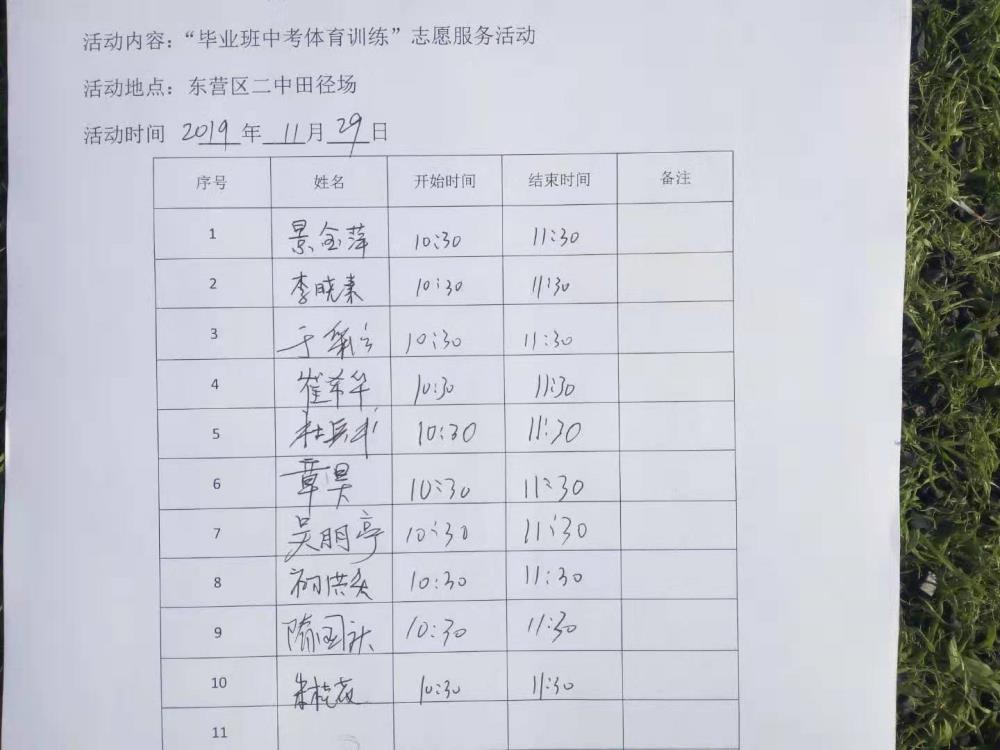 活动内容：“毕业班中考体育训练”志愿服务活动
活动地点：东营区二中田径场
活动时间 2019年 11月 29日
序号 姓名 开始时间 结束时间 备注
1 景金萍 10:30 11:30
2 李晓素 10:30 11:30
3 10:30 11:30
4 崔希华 10:30 11:30
5 10:30 11:30
6 章昊 10:30 11:30
7 吴朋亭 10:30 11:30
8 10:30 11:30
9 10:30 11:30
10 朱桂花 10:30 11:30
11